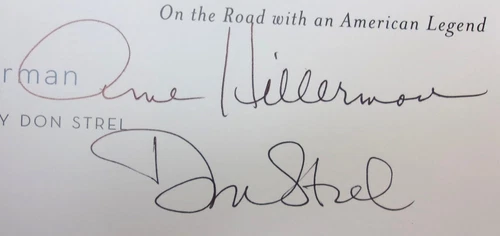 On the Road with an American Legend
rman Anne Hillerman
Y DON STREL
Don Strel